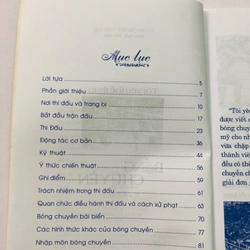 Mục lục
Lời tựa 5
Phần giới thiệu 7
Nơi thi đấu và trang bị 11
Bắt đầu trận đấu 21
Thi Đấu 31
Động tác cơ bản 36
Kỹ thuật 41
Ý thức chiến thuật 56
Ghi điểm 59
Trách nhiệm trong thi đấu 61
Quan chức điều hành thi đấu và cách xử phạt 63
Bóng chuyền bãi biển 65
Các hình thức khác của bóng chuyền 76
Nhập môn bóng chuyền 81
"Tôi yê
được viết
bóng chuy
mỹ cho nh
vừa chập
thành viê
đều có thể
chuyền ch
giải đơn